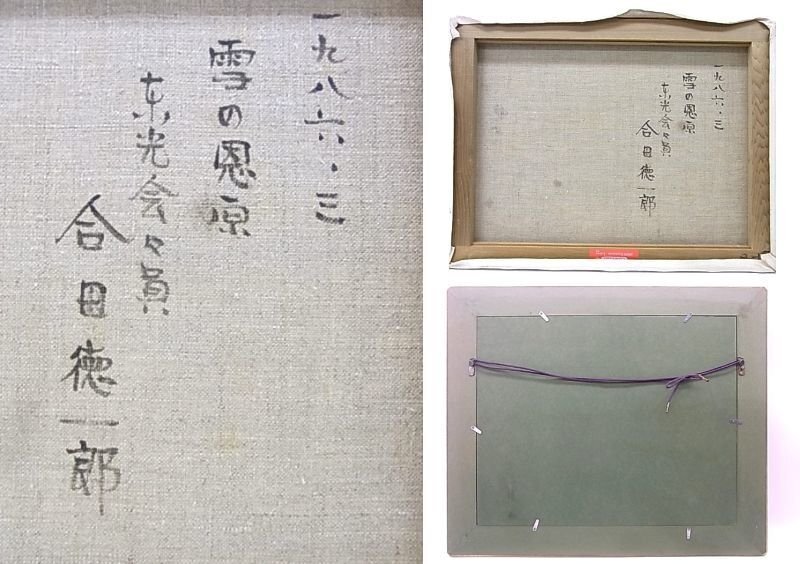 一九八六・三
雪の恩原
東光会々員
合田徳一郎
一九八六・三
雪の恩原
東光会々員
合田徳一郎